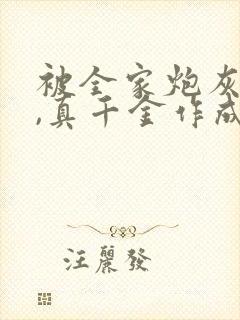 被全家炮灰
,真千金作成
汪麗發